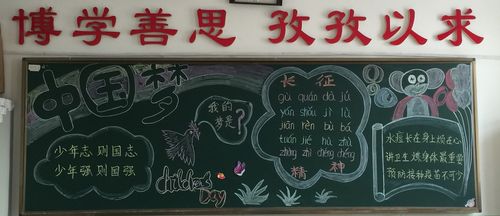 博学善思 孜孜以求
中国梦
少年志则国志
少年强则国强
我的
梦是?
children's
Day
长征
gù quán dà jú
yán shǒu jì lǜ
jiān rèn bù bá
tuán jié hù zhù
精神
水痘长在身上烦在心
讲卫生锻身体最重要
预防接种疫苗不可少